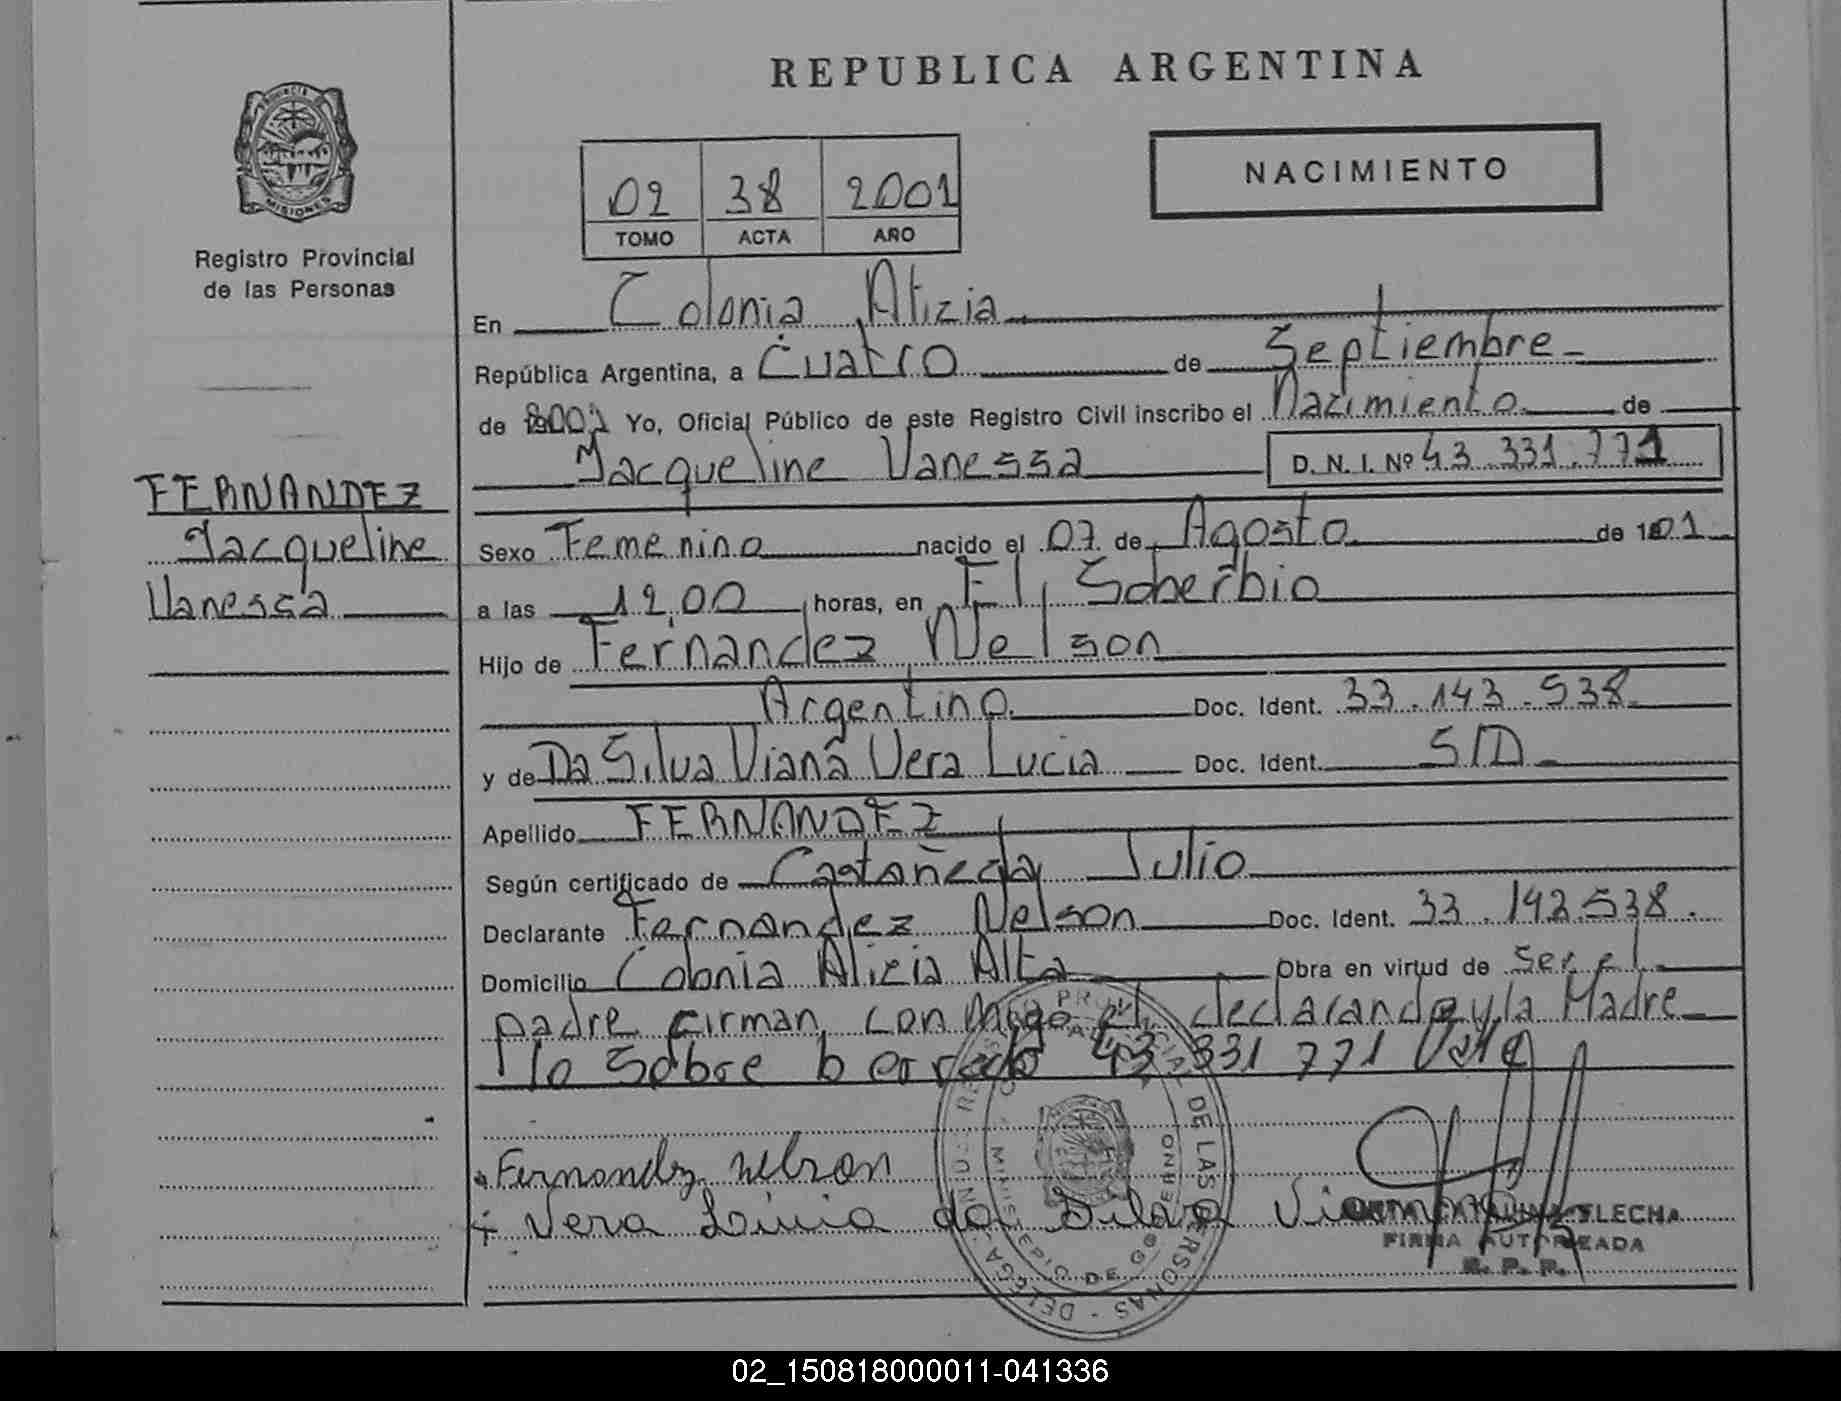 REPUBLICA ARGENTINA
NACIMIENTO
02 38 2001
TOMO ACTA AÑO
PROVINCIA
MISIONES
Registro Provincial
de las Personas
En Colonia Alicia
República Argentina, a Cuatro de Septiembre
de 2001 Yo, Oficial Público de este Registro Civil inscribo el Nacimiento de
Jacqueline Vanessa D. N. I. Nº 43 331.771
FERNANDEZ
Jacqueline
Vanessa
Sexo Femenino nacido el 07 de Agosto de 101
a las 12,00 horas, en El Soberbio
Hijo de Fernandez Nelson
Argentino. Doc. Ident. 33.143.538
y de Da Silva Viana Vera Lucia Doc. Ident. S/D
Apellido FERNANDEZ
Según certificado de Castañeda Julio
Declarante Fernandez Nelson Doc. Ident. 33.143.538.
Domicilio Colonia Alicia Alta Obra en virtud de Ser el
padre firman con migo el declarando y la Madre
lo Sobre borrado 43 331 771 Vale
Fernandez nelson
+ Vera Lúcia da Silva Viana
FLECHA
FIRMA AUTORIZADA
R. P. P.
DE LAS PERSONAS - DELEGACION
MINISTERIO DE GOBIERNO
02_150818000011-041336